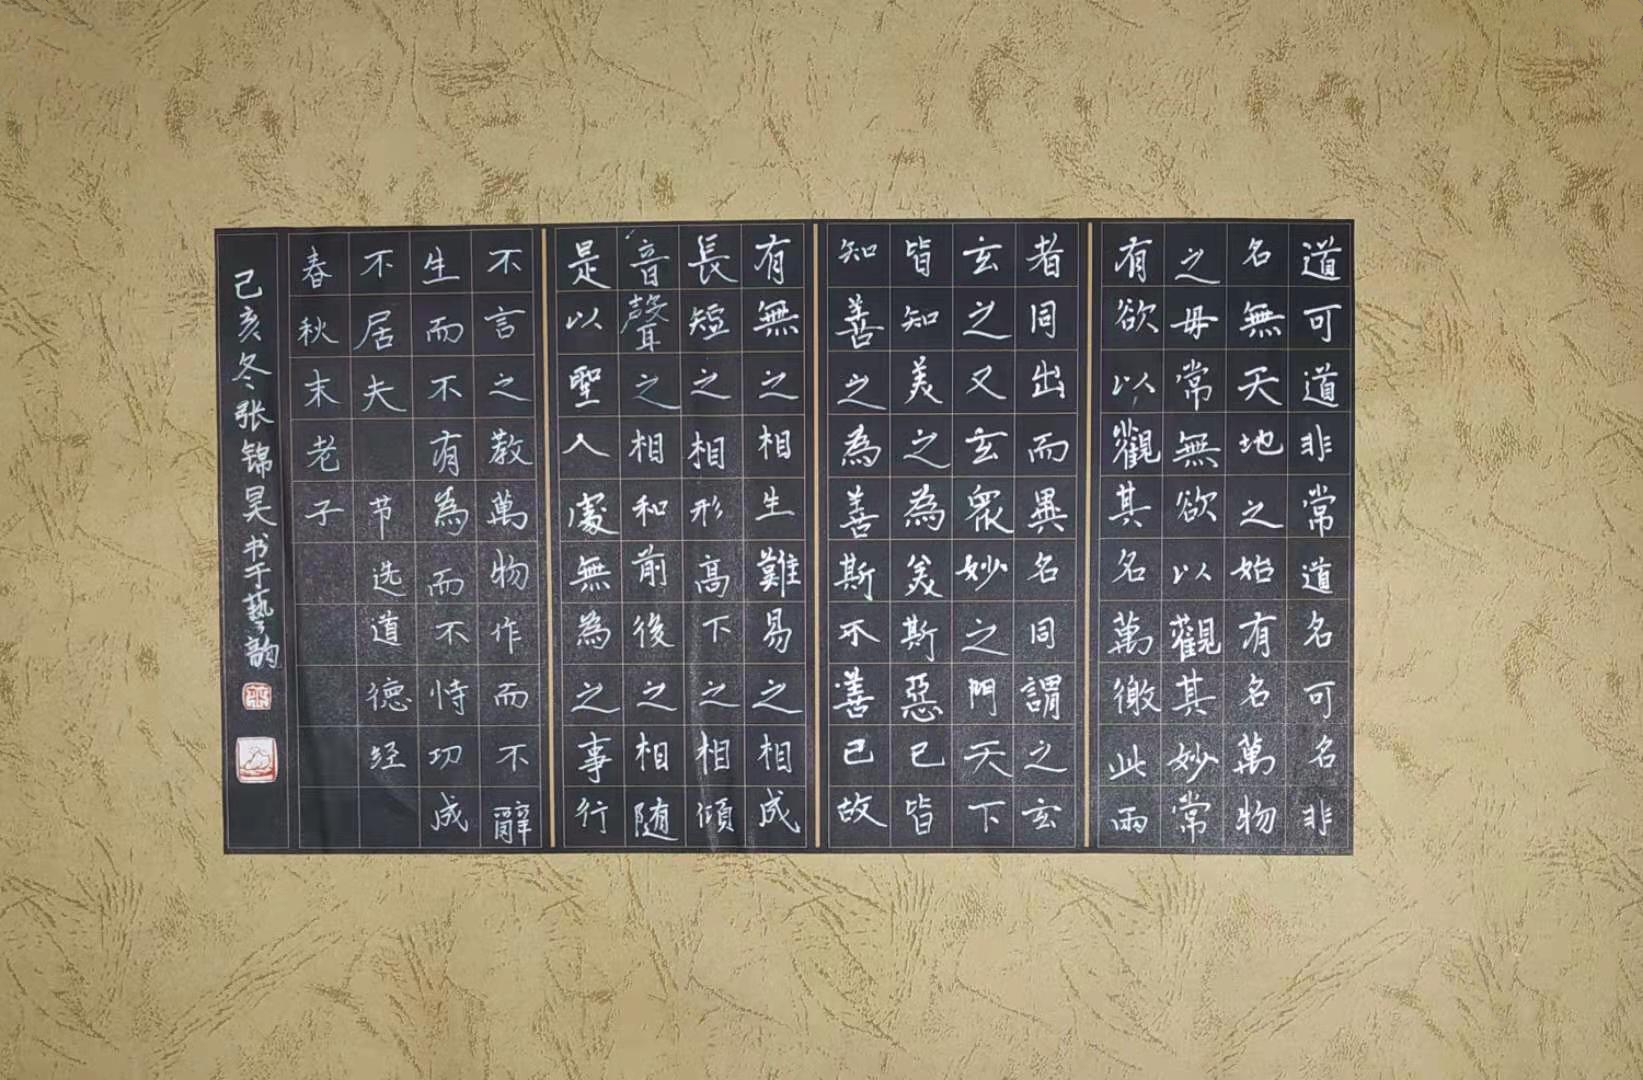 道可道非常道名可名非
名無天地之始有名萬物
之毋常無欲以觀其妙常
有欲以觀其名萬徼此兩
者同出而異名同謂之玄
玄之又玄眾妙之門天下
皆知美之為美斯惡已皆
知善之為善斯不善已故
有無之相生難易之相成
長短之相形高下之相傾
音聲之相和前後之相随
是以聖人處無為之事行
不言之教萬物作而不辭
生而不有為而不恃功成
不居夫 节选道德经
春秋末老子
己亥冬张锦昊书于藝韵